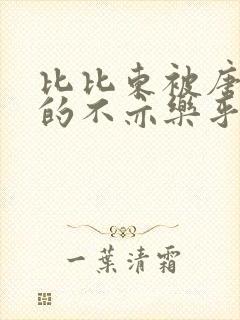 比比东被唐
的不亦樂乎
一葉清霜